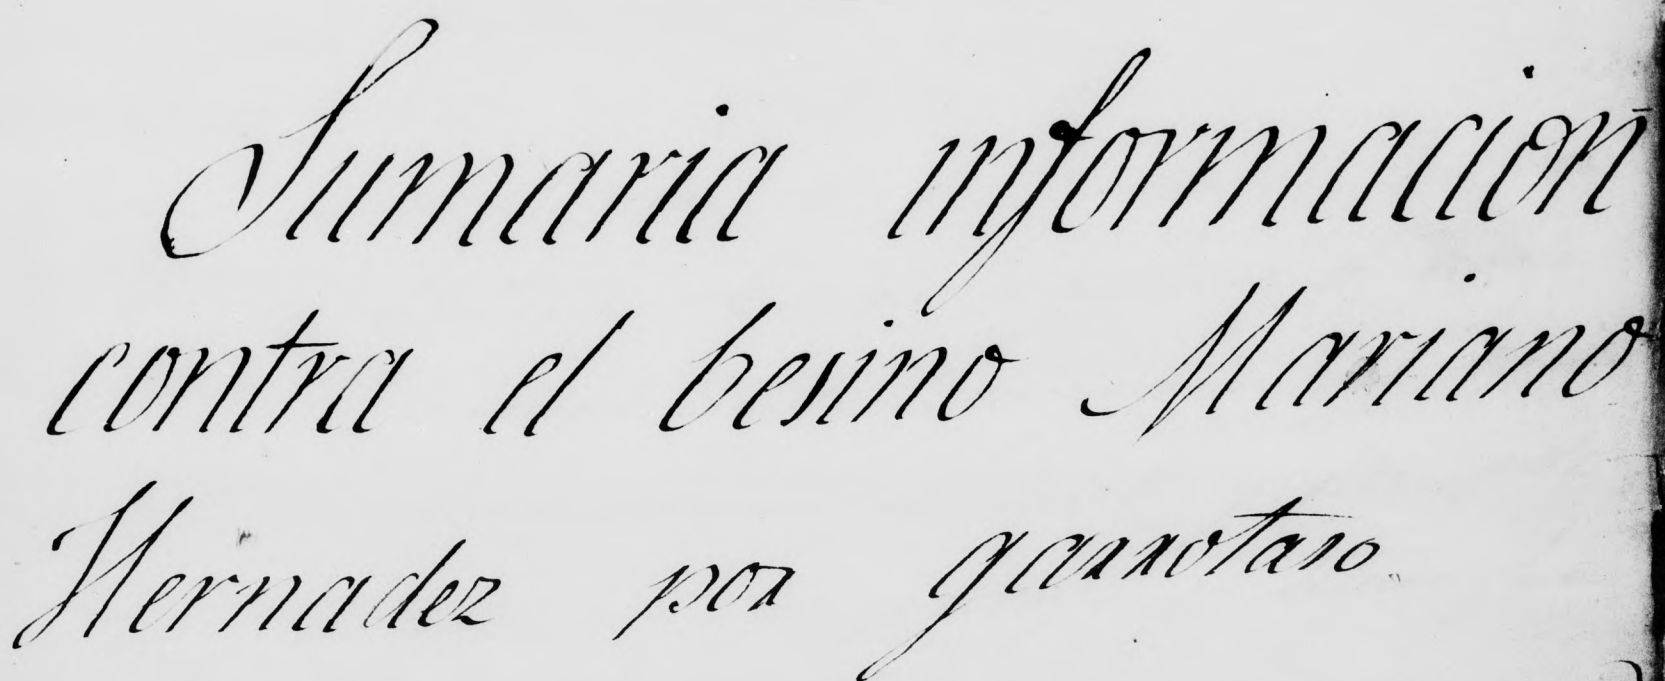 Sumaria informacion
contra el besino Mariano
Hernadez por garrotaso